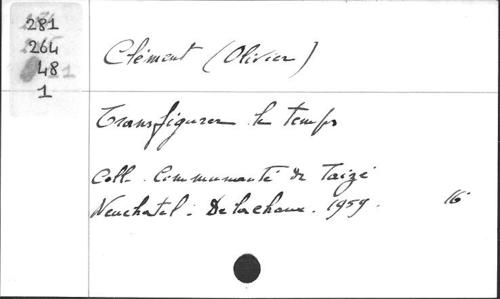 281
264
48
1
Clément (Olivier)
Transfigurer le temps
Coll. Communauté de Taizé
Neuchatel - Delachaux. 1959. 16